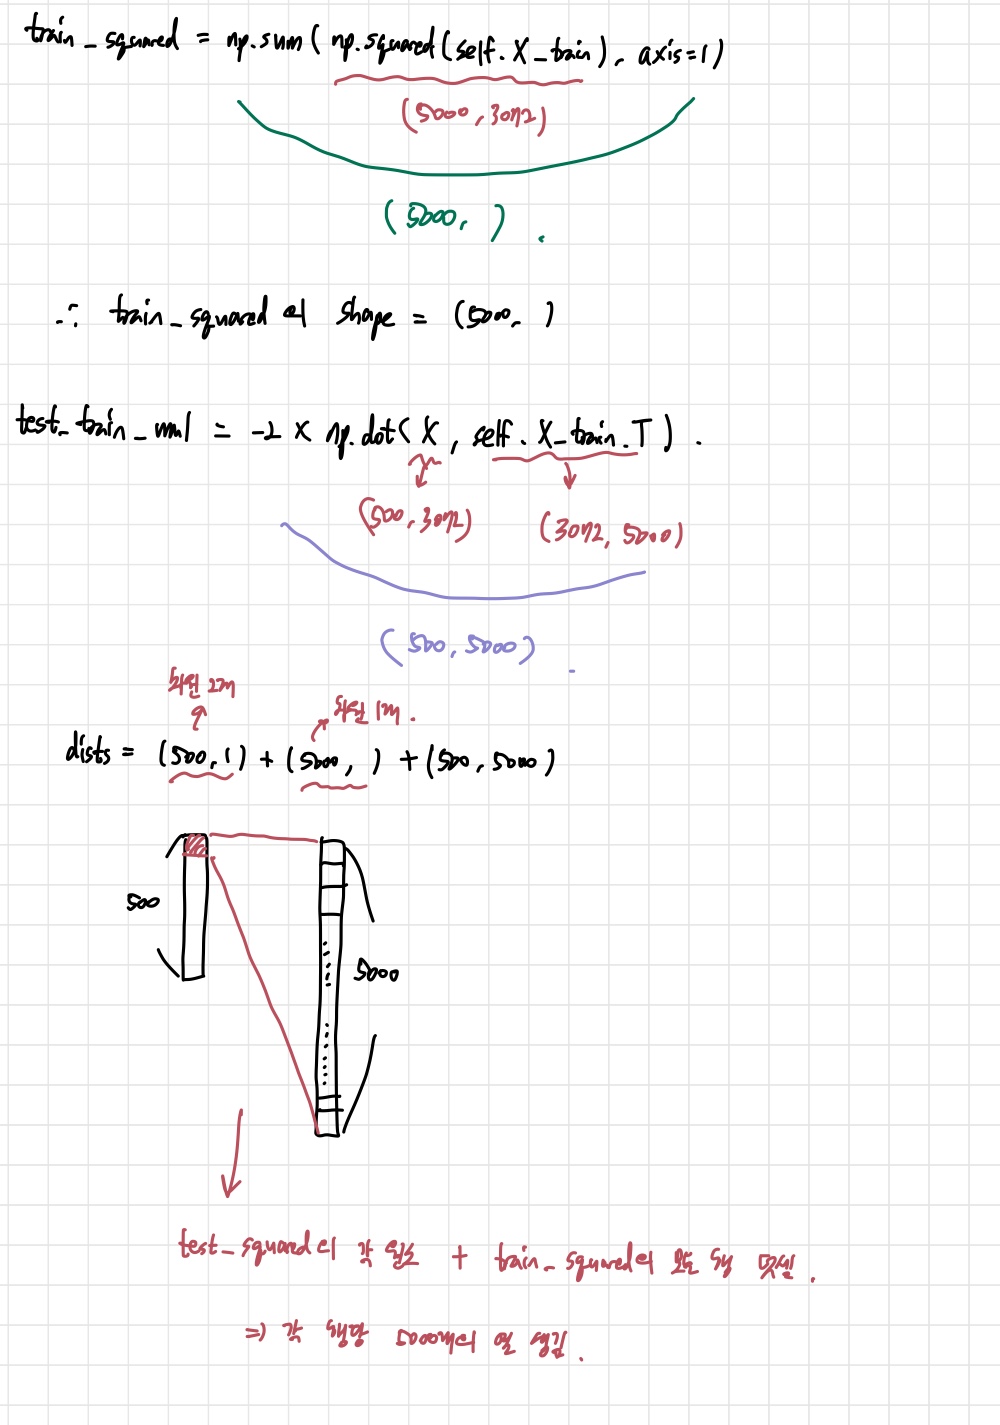 train_squared = np.sum( np.squared(self.X_train), axis=1)
(5000, 3072)
(5000, ) .
∴ train_squared의 shape = (5000, )
test_train_mul = -2 × np.dot( X , self.X_train.T ) .
(500, 3072) (3072, 5000)
(500, 5000) .
차원 2개
차원 1개 .
dists = (500, 1) + (5000, ) + (500, 5000)
500
5000
test_squared의 각 원소 + train_squared의 모든 행 덧셈 .
⇒ 각 행당 5000개의 열 생김 .